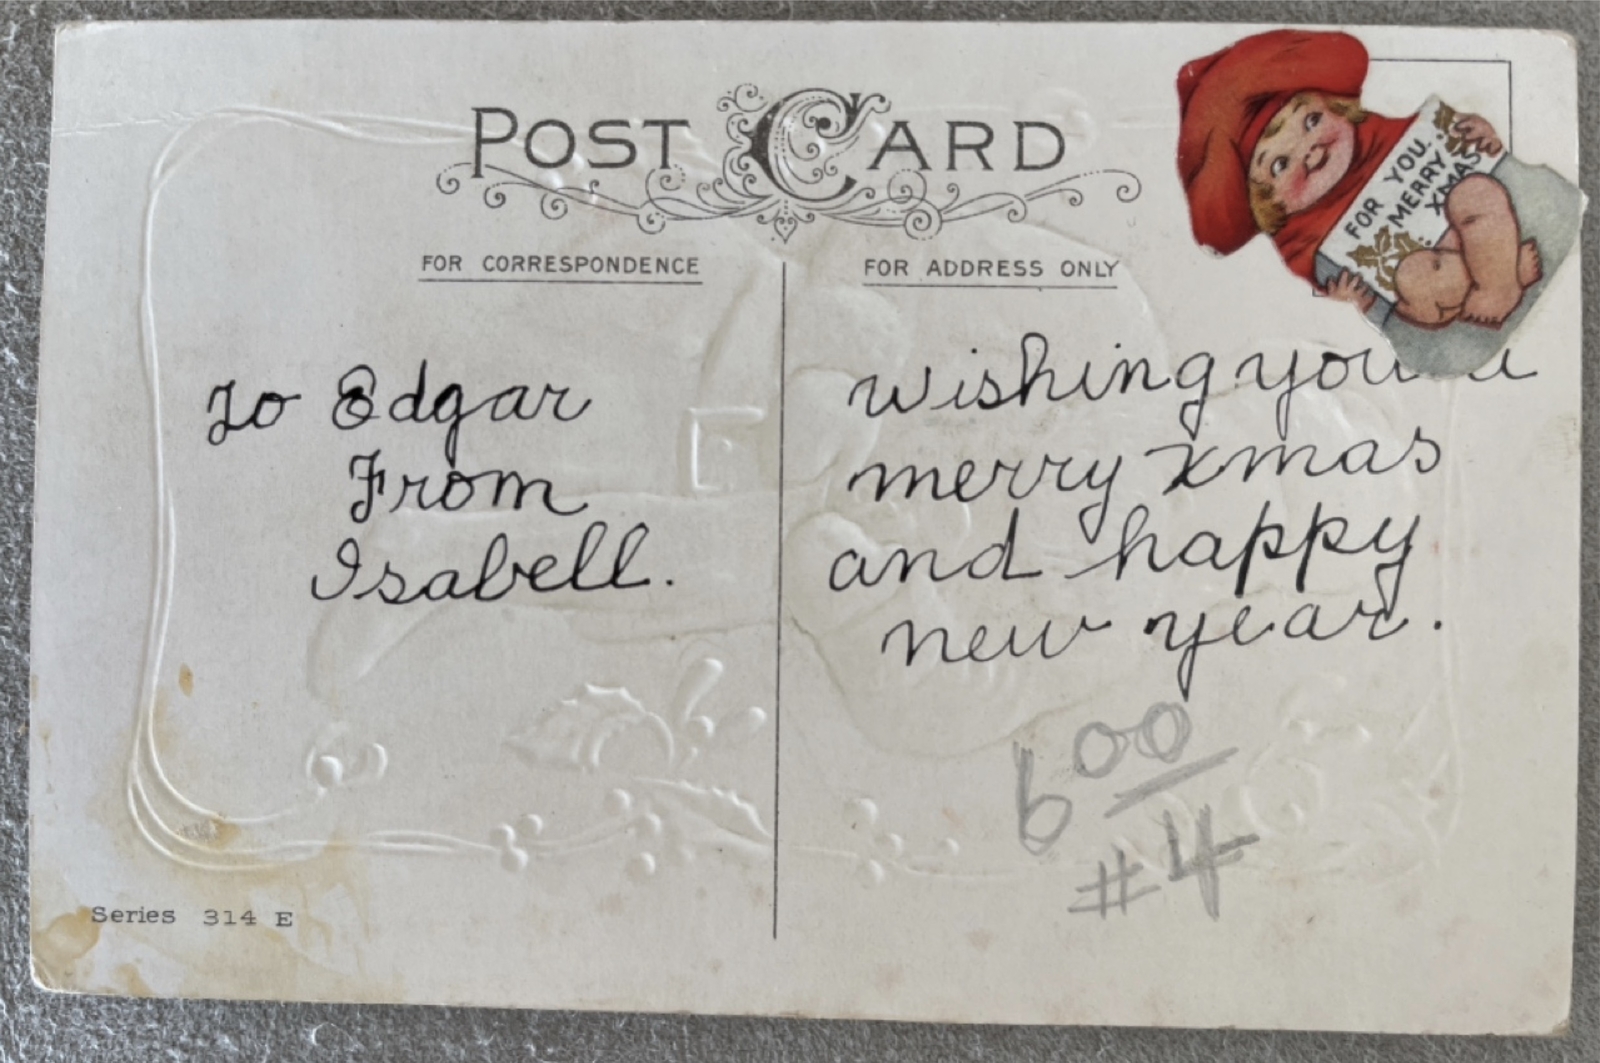 POST CARD
FOR CORRESPONDENCE
FOR ADDRESS ONLY
FOR YOU.
MERRY
XMAS
To Edgar
From
Isabell.
wishing you a
merry xmas
and happy
new year.
600
#4
Series 314 E